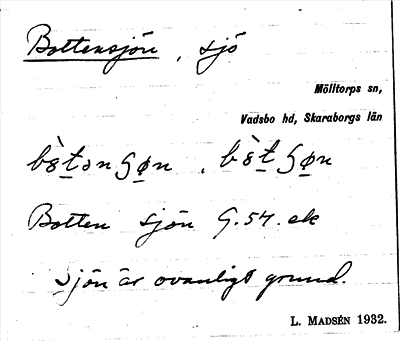 Bottensjön, sjö
Mölltorps sn,
Vadsbo hd, Skaraborgs län
Botten sjön G.54. ek
sjön är ovanligt grund.
L. MADSÉN 1932.